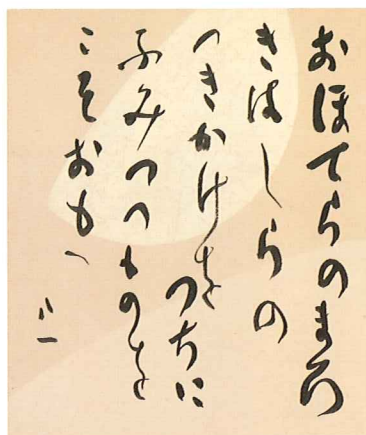 おほてらのまろ
きはしらの
つきかけを
つちに
ふみつつものを
こそおもへ
八一